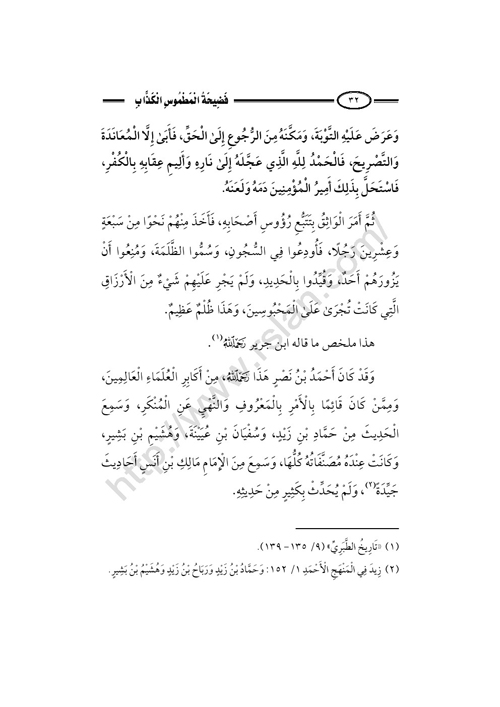 ٣٢ فَضِيحَةُ الْمَطْمُوسِ الْكَذَّابِ
وَعَرَضَ عَلَيْهِ التَّوْبَةَ، وَمَكَّنَهُ مِنَ الرُّجُوعِ إِلَىٰ الْحَقِّ، فَأَبَىٰ إِلَّا الْمُعَانَدَةَ
وَالتَّصْرِيحَ، فَالْحَمْدُ لِلَّهِ الَّذِي عَجَّلَهُ إِلَىٰ نَارِهِ وَأَلِيمِ عِقَابِهِ بِالْكُفْرِ،
فَاسْتَحَلَّ بِذَلِكَ أَمِيرُ الْمُؤْمِنِينَ دَمَهُ وَلَعَنَهُ.
ثُمَّ أَمَرَ الْوَاثِقُ بِتَتَبُّعِ رُؤُوسِ أَصْحَابِهِ، فَأَخَذَ مِنْهُمْ نَحْوًا مِنْ سَبْعَةٍ
وَعِشْرِينَ رَجُلًا، فَأُودِعُوا فِي السُّجُونِ، وَسُمُّوا الظَّلَمَةَ، وَمُنِعُوا أَنْ
يَزُورَهُمْ أَحَدٌ، وَقُيِّدُوا بِالْحَدِيدِ، وَلَمْ يَجْرِ عَلَيْهِمْ شَيْءٌ مِنَ الْأَرْزَاقِ
الَّتِي كَانَتْ تُجْرَىٰ عَلَىٰ الْمَحْبُوسِينَ، وَهَذَا ظُلْمٌ عَظِيمٌ.
هذا ملخص ما قاله ابن جرير رَحِمَهُ اللَّهُ (١).
وَقَدْ كَانَ أَحْمَدُ بْنُ نَصْرٍ هَذَا رَحِمَهُ اللَّهُ، مِنْ أَكَابِرِ الْعُلَمَاءِ الْعَالِمِينَ،
وَمِمَّنْ كَانَ قَائِمًا بِالْأَمْرِ بِالْمَعْرُوفِ وَالنَّهْيِ عَنِ الْمُنْكَرِ، وَسَمِعَ
الْحَدِيثَ مِنْ حَمَّادِ بْنِ زَيْدٍ، وَسُفْيَانَ بْنِ عُيَيْنَةَ، وَهُشَيْمِ بْنِ بَشِيرٍ،
وَكَانَتْ عِنْدَهُ مُصَنَّفَاتُهُ كُلُّهَا، وَسَمِعَ مِنَ الْإِمَامِ مَالِكِ بْنِ أَنَسٍ أَحَادِيثَ
جَيِّدَةً (٢)، وَلَمْ يُحَدِّثْ بِكَثِيرٍ مِنْ حَدِيثِهِ.
(١) «تَارِيخُ الطَّبَرِيِّ» (٩/ ١٣٥- ١٣٩).
(٢) زِيدَ فِي الْمَنْهَجِ الْأَحْمَدِ ١/ ١٥٢: وَحَمَّادُ بْنُ زَيْدٍ وَرَبَاحُ بْنُ زَيْدٍ وَهُشَيْمُ بْنُ بَشِيرٍ.
http://www.rslan.com/